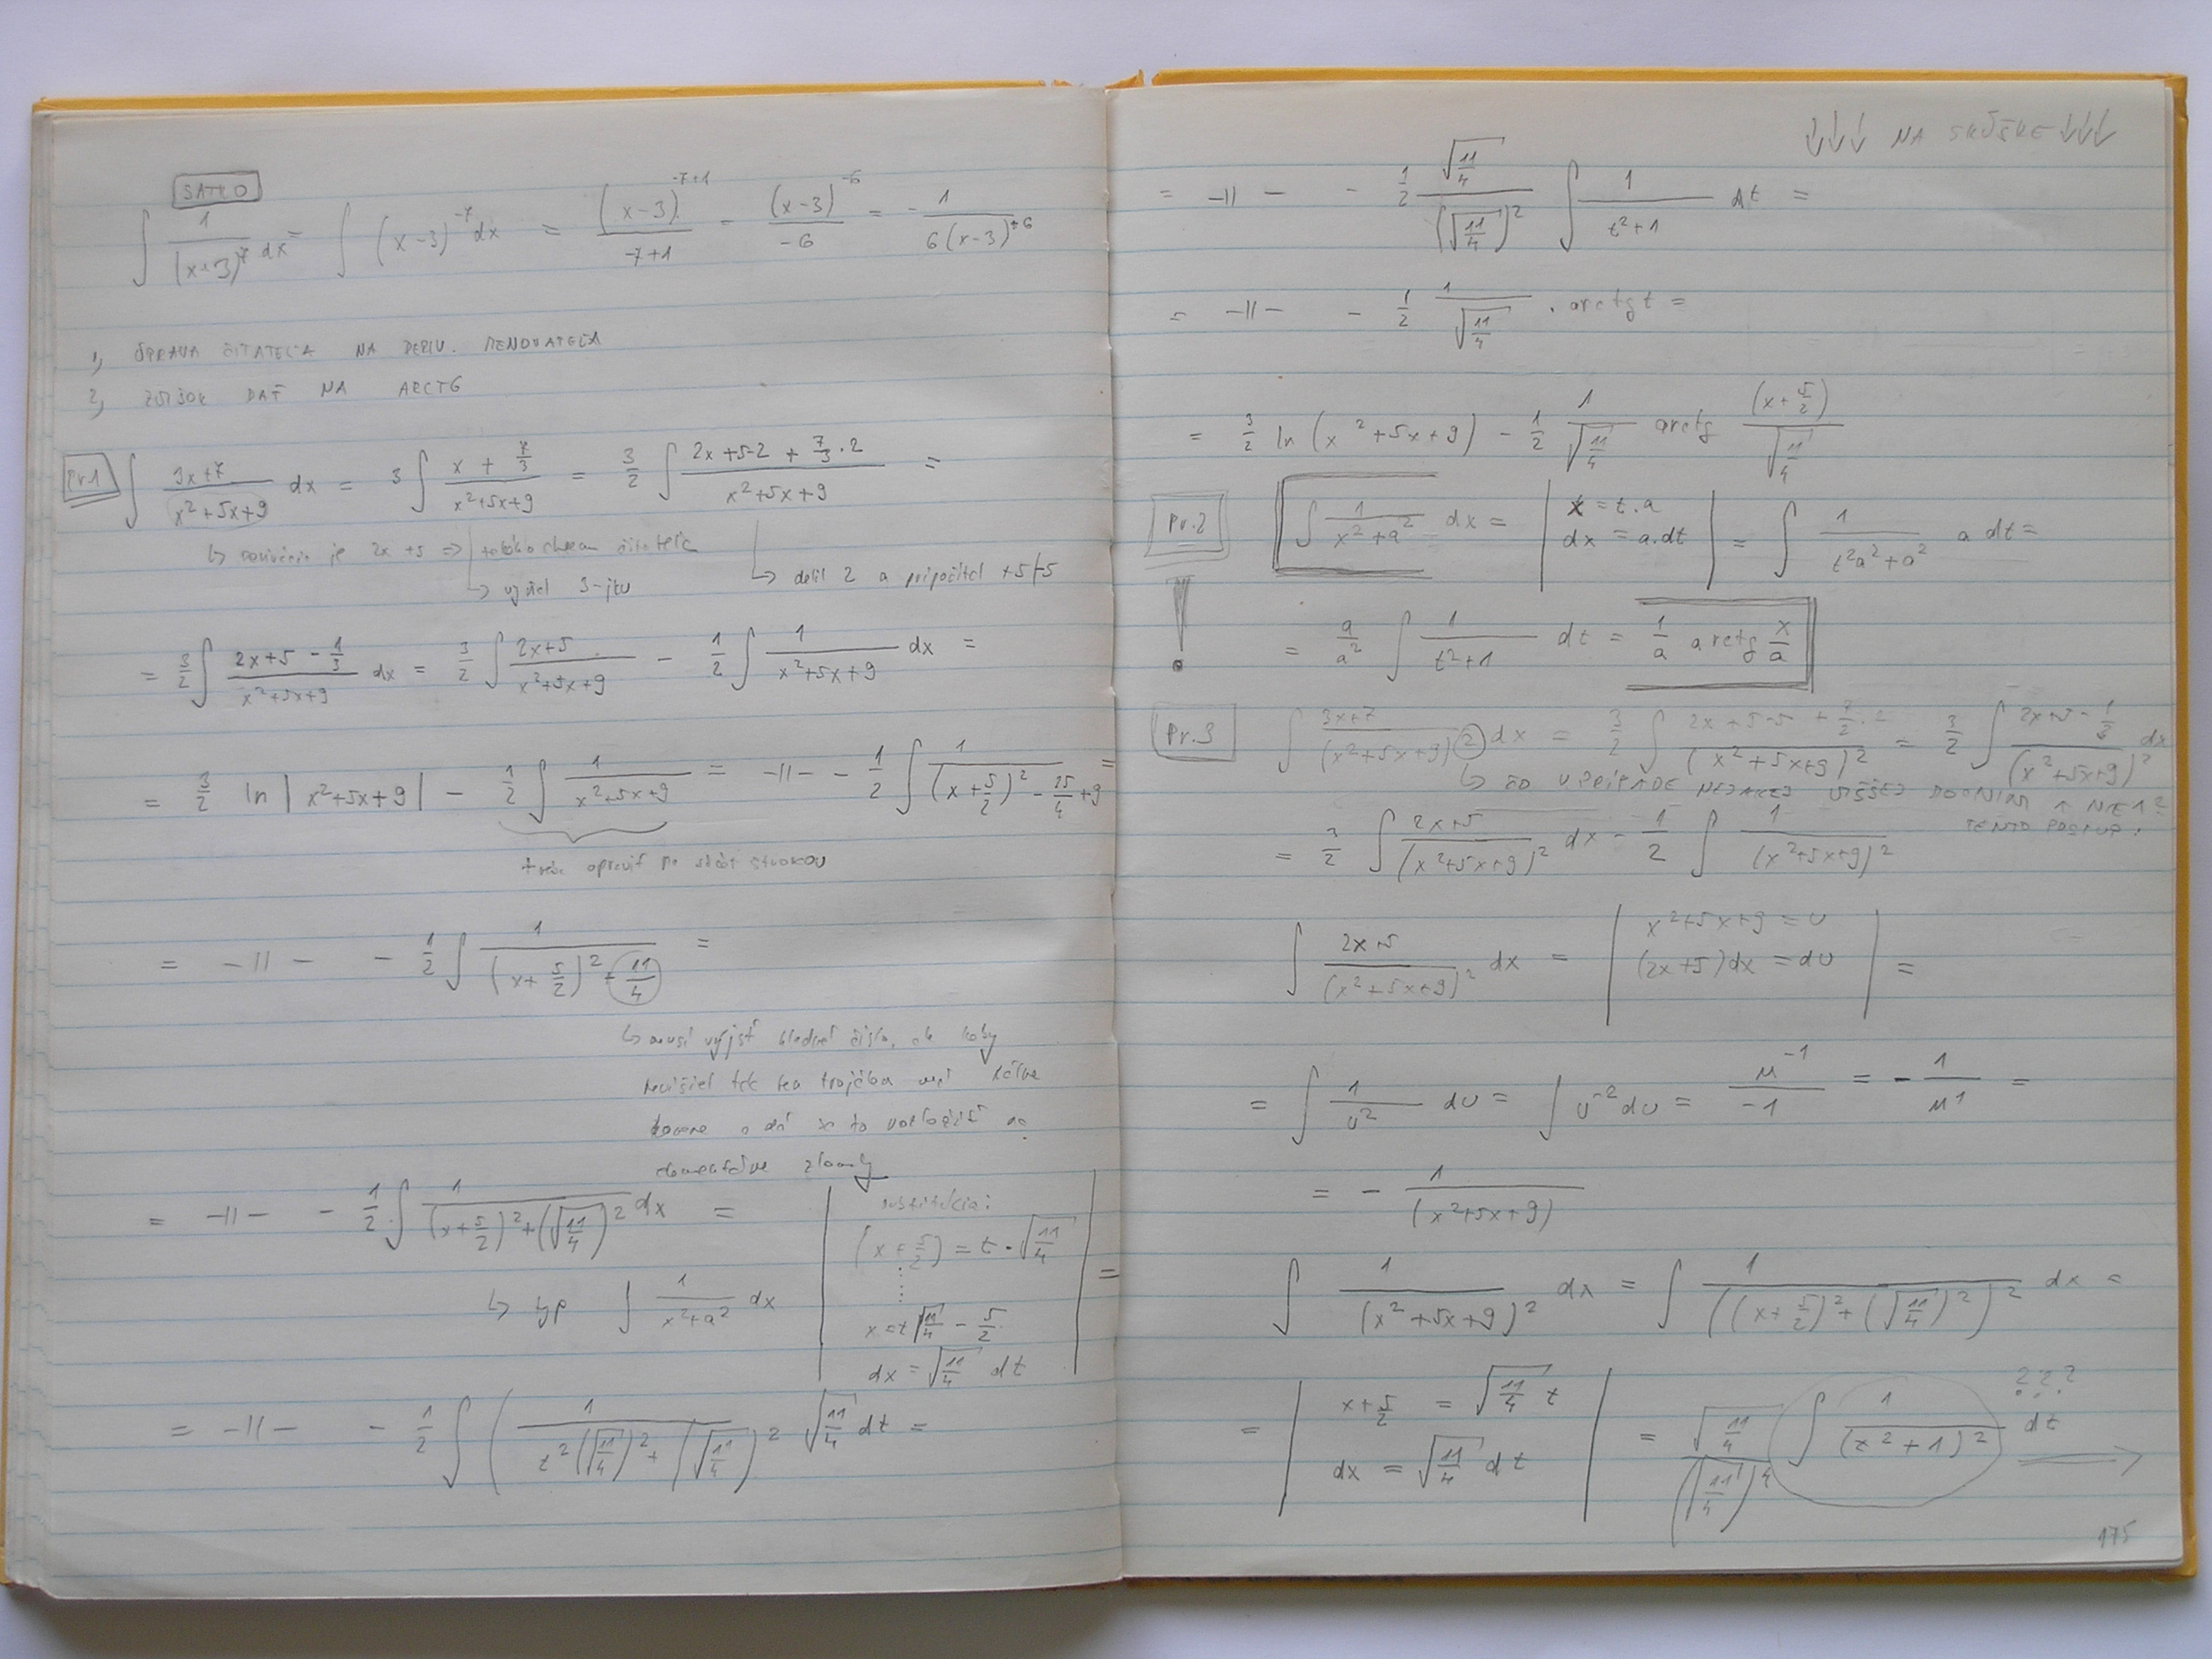 SATKO
∫ 1/(x-3)^7 dx = ∫ (x-3)^-7 dx = (x-3)^(-7+1)/(-7+1) = (x-3)^-6/-6 = - 1/(6(x-3)^+6)
1, ÚPRAVA ČITATEĽA NA DERIV. MENOVATEĽA
2, ZVYŠOK DAŤ NA ARCTG
Pr.1 ∫ (3x+7)/(x²+5x+9) dx = 3 ∫ (x + 7/3)/(x²+5x+9) = 3/2 ∫ (2x+5-2 + 7/3·2)/(x²+5x+9) =
↳ derivácia je 2x+5 => takého chcem čitateľa
↳ vyňal 3-jku
↳ delil 2 a pripočítal +5/-5
= 3/2 ∫ (2x+5 - 1/3)/(x²+5x+9) dx = 3/2 ∫ (2x+5)/(x²+5x+9) - 1/2 ∫ 1/(x²+5x+9) dx =
= 3/2 ln |x²+5x+9| - 1/2 ∫ 1/(x²+5x+9) = -||- - 1/2 ∫ 1/((x+5/2)² - 25/4 + 9) =
treba upraviť na
= -||- - 1/2 ∫ 1/((x+5/2)² + 11/4) =
↳ musí vyjsť kladné číslo, ak keby
nevyšiel tak ten trojčlen má reálne
korene a dá sa to rozložiť na
elementárne zlomky
= -||- - 1/2 ∫ 1/((x+5/2)² + (√(11/4))²) dx =
↳ typ ∫ 1/(x²+a²) dx
substitúcia:
(x+5/2) = t·√(11/4)
⋮
x = t√(11/4) - 5/2
dx = √(11/4) dt
=
= -||- - 1/2 ∫ (1/(t²(√(11/4))² + (√(11/4))²) √(11/4) dt =
↓↓↓ NA SKÚŠKE ↓↓↓
= -||- - 1/2 √(11/4)/(√(11/4))² ∫ 1/(t²+1) dt =
= -||- - 1/2 1/√(11/4) . arctg t =
= 3/2 ln (x²+5x+9) - 1/2 1/√(11/4) arctg (x+5/2)/√(11/4)
Pr.2 ∫ 1/(x²+a²) dx = | x = t.a
dx = a.dt | = ∫ 1/(t²a²+a²) a dt =
! = a/a² ∫ 1/(t²+1) dt = 1/a arctg x/a
Pr.3 ∫ (3x+7)/(x²+5x+9)² dx = 3/2 ∫ (2x+5-5 + 7/3·2)/(x²+5x+9)² = 3/2 ∫ (2x+5 - 1/3)/(x²+5x+9)² dx
↳ ČO V PRÍPADE NEJAKEJ VYŠŠEJ MOCNINY A NIE 1?
TENTO POSTUP:
= 3/2 ∫ (2x+5)/(x²+5x+9)² dx - 1/2 ∫ 1/(x²+5x+9)²
∫ (2x+5)/(x²+5x+9)² dx = | x²+5x+9 = u
(2x+5)dx = du | =
= ∫ 1/u² du = ∫ u^-2 du = u^-1/-1 = - 1/u^1 =
= - 1/(x²+5x+9)
∫ 1/(x²+5x+9)² dx = ∫ 1/((x+5/2)² + (√(11/4))²)² dx =
= | x+5/2 = √(11/4) t
dx = √(11/4) dt | = √(11/4)/(√(11/4))^4 ∫ 1/(t²+1)² dt
???
175